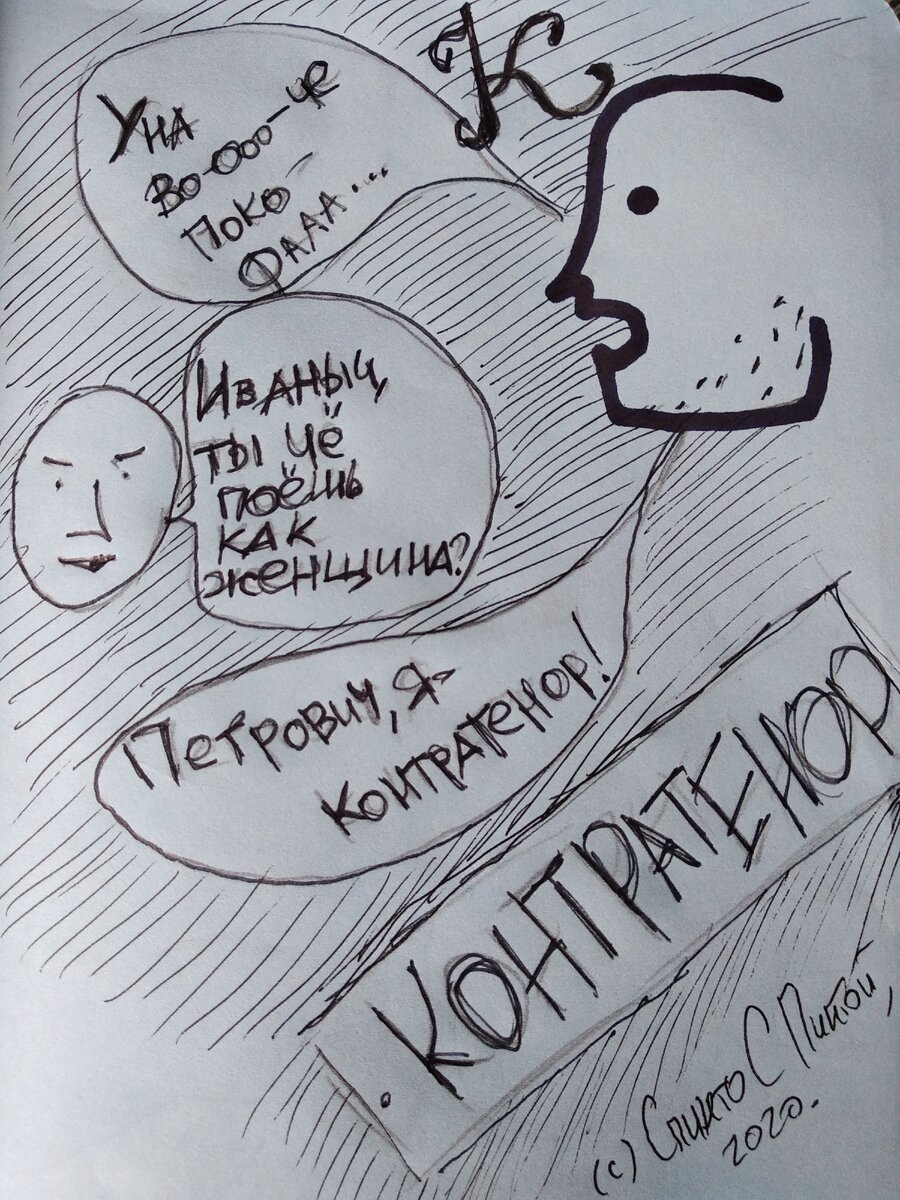 К
Уна
Во-ооо-че
поко-
фааа...
Иваныч,
ты чё
поёшь
как
женщина?
Петрович, я-
контратенор!
Контратенор
(с) Спинето С Пиптой,
2020.